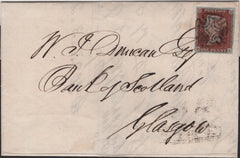 W. J. Duncan Esq
Bank of Scotland
Glasgow